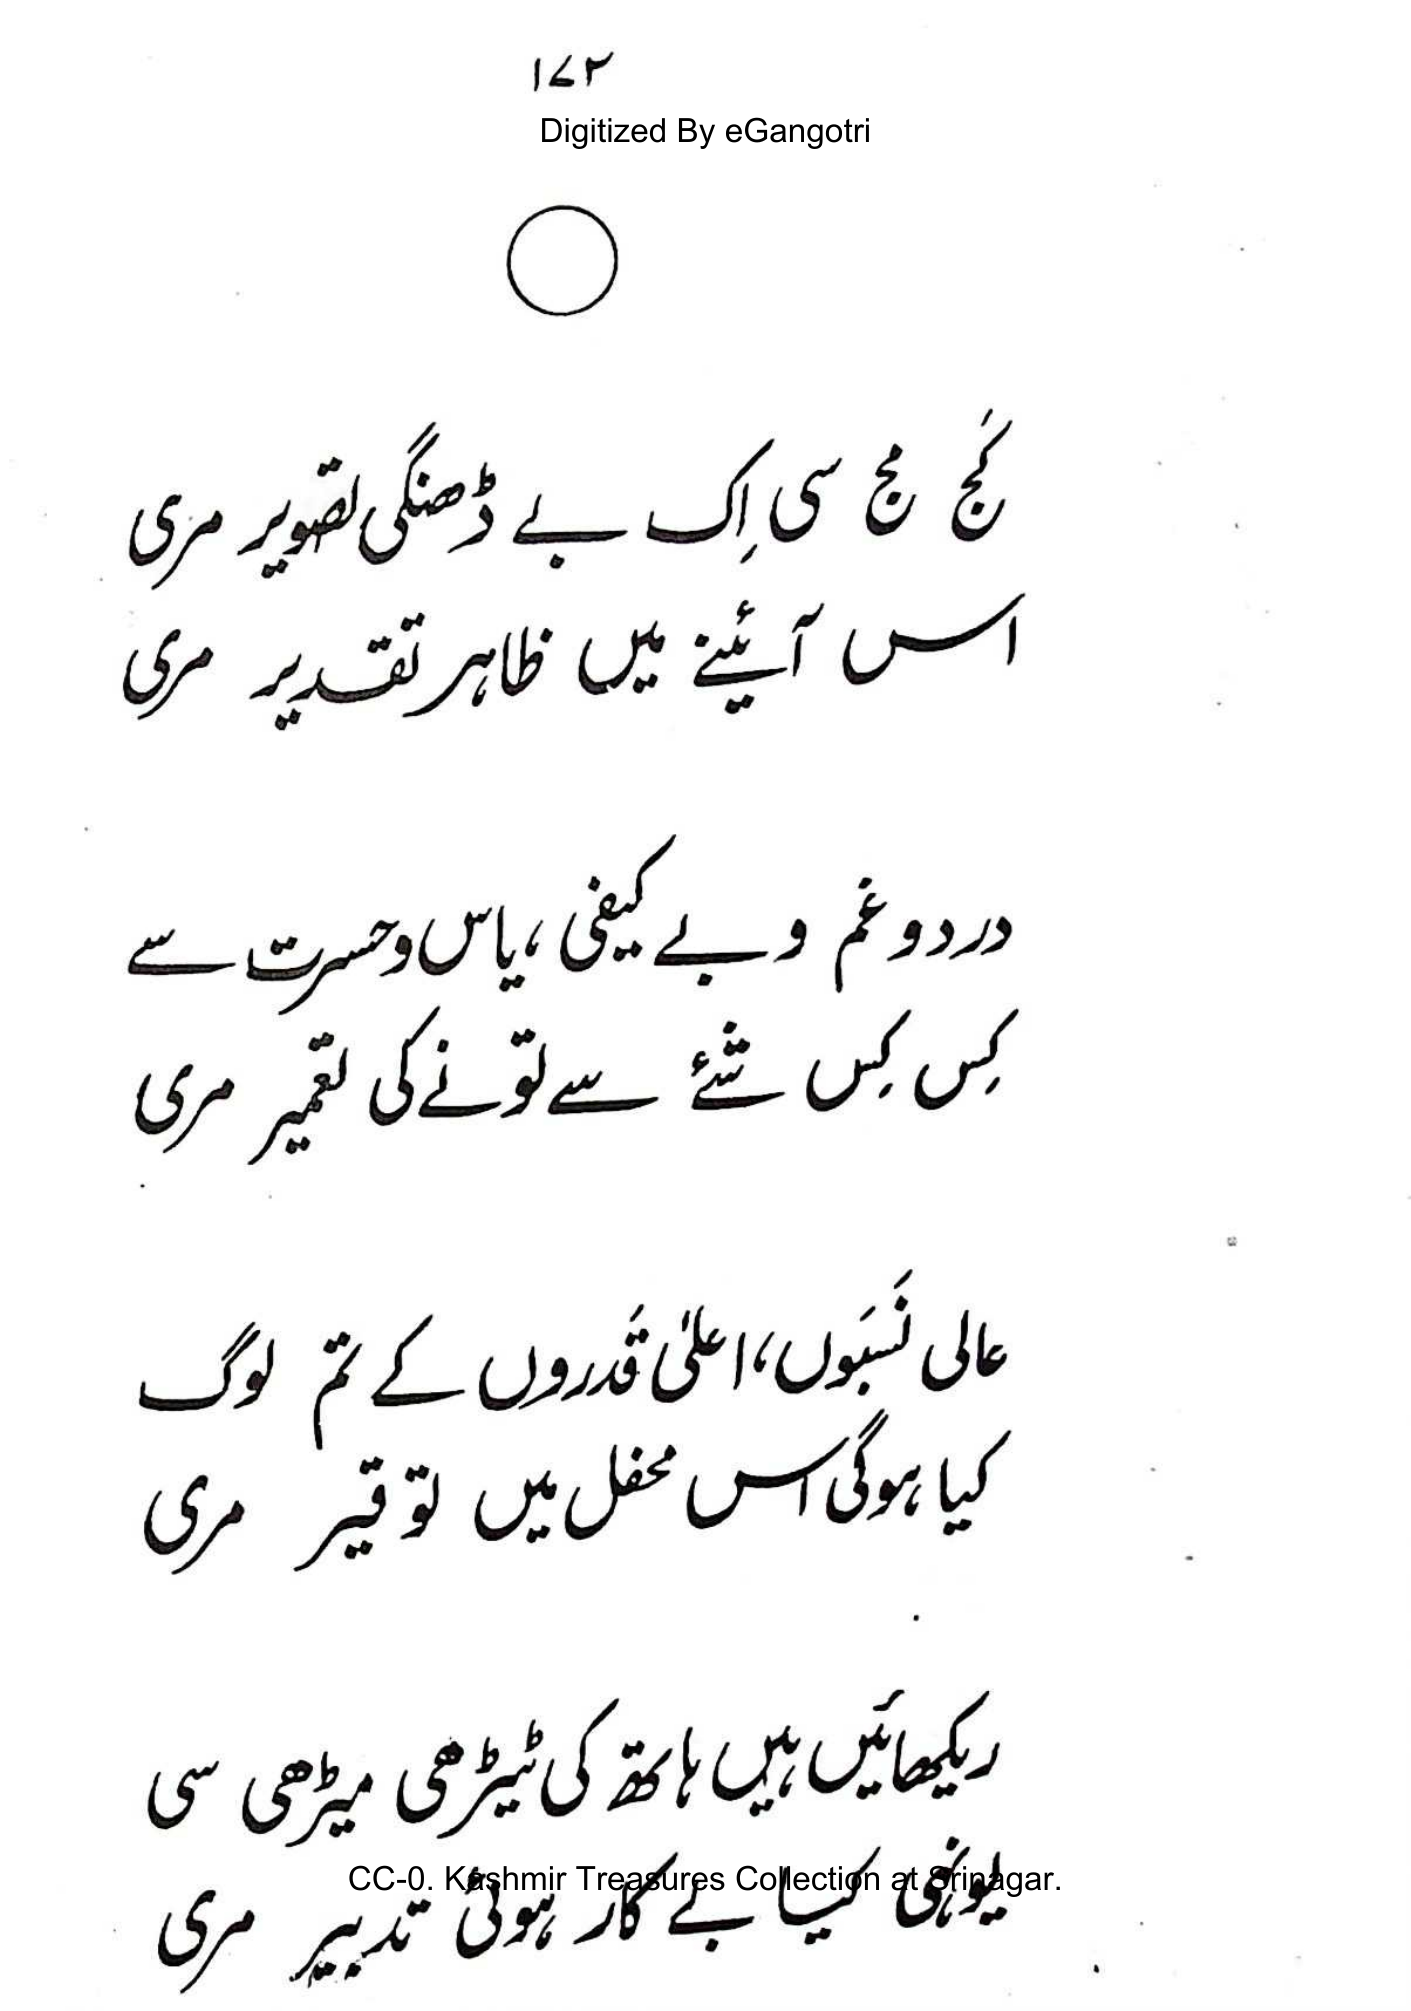 ۱۷۲
Digitized By eGangotri
کَج مج سی اِک بے ڈھنگی تصویر مری
اس آئینے میں ظاہر تقدیر مری
درد و غم و بے کیفی، یاس و حسرت سے
کِس کِس شئے سے تو نے کی تعمیر مری
عالی نَسَبوں، اعلیٰ قَدروں کے تم لوگ
کیا ہوگی اس محفل میں توقیر مری
ریکھائیں ہیں ہاتھ کی ٹیڑھی میڑھی سی
یونہی کیا بے کار ہوئی تدبیر مری
CC-0. Kashmir Treasures Collection at Srinagar.